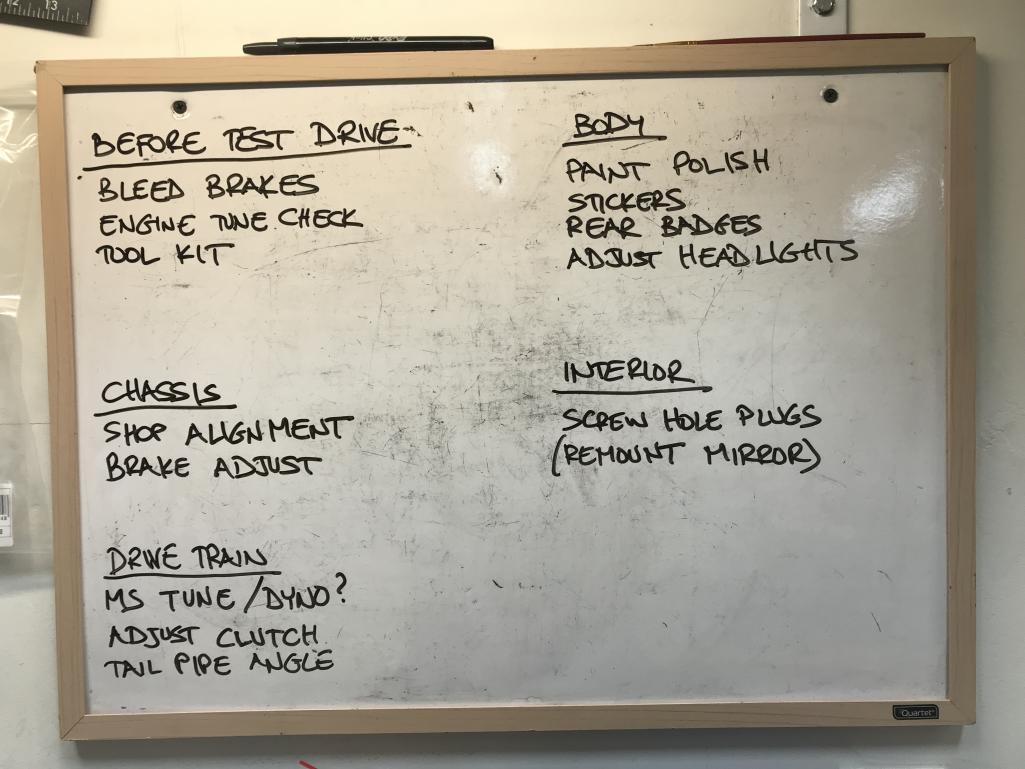 12 13
BEFORE TEST DRIVE
BLEED BRAKES
ENGINE TUNE CHECK
TOOL KIT
CHASSIS
SHOP ALIGNMENT
BRAKE ADJUST
DRIVE TRAIN
MS TUNE/DYNO?
ADJUST CLUTCH
TAIL PIPE ANGLE
BODY
PAINT POLISH
STICKERS
REAR BADGES
ADJUST HEADLIGHTS
INTERIOR
SCREW HOLE PLUGS
(REMOUNT MIRROR)
Quartet